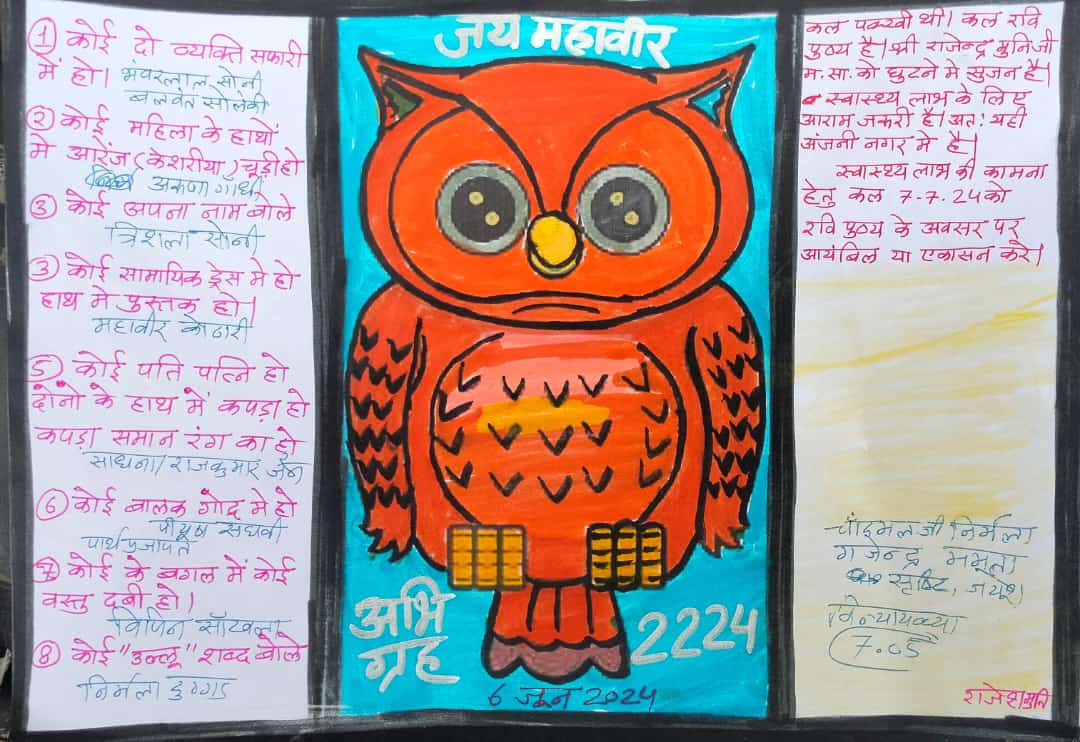 ① कोई दो व्यक्ति सफारी
में हो।
भंवरलाल सोनी
बलवंत सोलंकी
② कोई महिला के हाथों
मे आरेंज (केशरीया) चूड़ी हो
अरूणा गांधी
③ कोई अपना नाम बोले
त्रिशला सोनी
③ कोई सामायिक ड्रेस मे हो
हाथ मे पुस्तक हो।
महावीर कोठारी
⑤ कोई पति पत्नि हो
दोनो के हाथ में कपड़ा हो
कपड़ा समान रंग का हो
साधना/राजकुमार जैन
⑥ कोई बालक गोद मे हो
पीयूष संघवी
पार्थ प्रजापत
⑦ कोई के बगल में कोई
वस्तु दबी हो।
विपिन साँखला
⑧ कोई "उल्लू" शब्द बोले
निर्मला डुग्गड
जय महावीर
अभि
ग्रह
2224
6 जून 2024
कल पक्खी थी। कल रवि
पुष्य है। श्री राजेन्द्र मुनिजी
म.सा. को घुटने मे सुजन है।
स्वास्थ्य लाभ के लिए
आराम जरूरी है। अतः यही
अंजनी नगर मे है।
स्वास्थ्य लाभ की कामना
हेतु कल 7-7-24 को
रवि पुष्य के अवसर पर
आयंबिल या एकासन करे।
चाँदमलजी निर्मला
राजेन्द्र ममता
सृष्टि, जयेश
7.05
राजेशमुनि